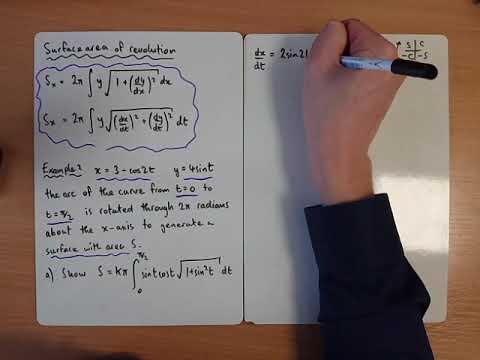 Surface area of revolution
Sx = 2π ∫ y √(1 + (dy/dx)²) dx
Sx = 2π ∫ y √((dx/dt)² + (dy/dt)²) dt
Example: x = 3 - cos2t y = 4sint
the arc of the curve from t=0 to
t=π/2 is rotated through 2π radians
about the x-axis to generate a
surface with area S.
a) Show S = kπ ∫₀^π/2 sint cost √(1+sin²t) dt
dx/dt = 2sin2
* S | C
-C | -S